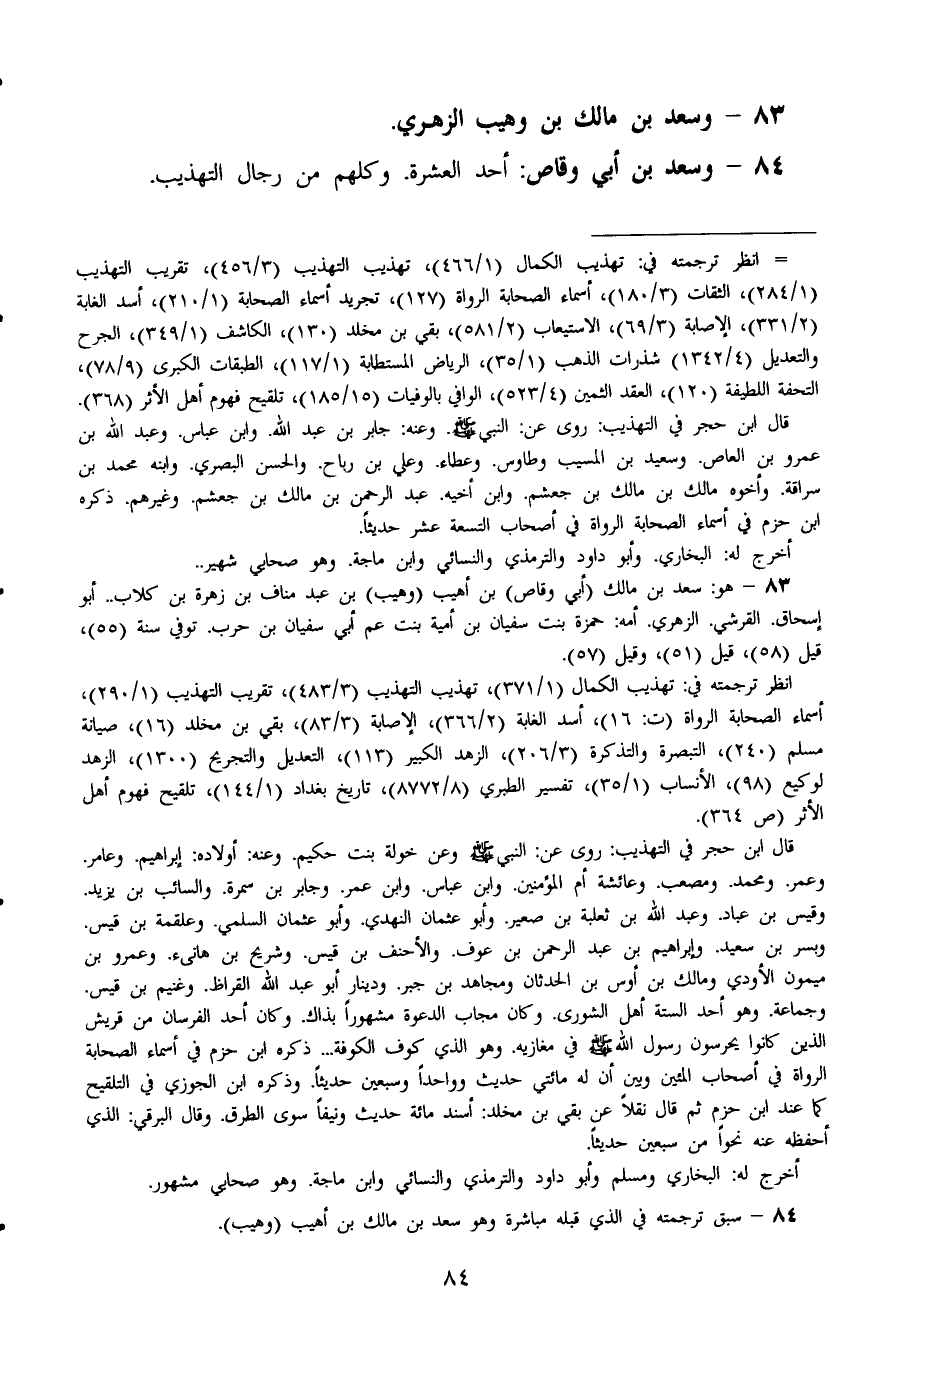 ٨٣ - وسعد بن مالك بن وهيب الزهري.
٨٤ - وسعد بن أبي وقاص: أحد العشرة. وكلهم من رجال التهذيب.
= انظر ترجمته في: تهذيب الكمال (٤٦٦/١)، تهذيب التهذيب (٤٥٦/٣)، تقريب التهذيب
(٢٨٤/١)، الثقات (١٨٠/٣)، أسماء الصحابة الرواة (١٢٧)، تجريد أسماء الصحابة (٢١٠/١)، أسد الغابة
(٣٣١/٢)، الإصابة (٦٩/٣)، الاستيعاب (٥٨١/٢)، بقي بن مخلد (١٣٠)، الكاشف (٣٤٩/١)، الجرح
والتعديل (١٣٤٢/٤) شذرات الذهب (٣٥/١)، الرياض المستطابة (١١٧/١)، الطبقات الكبرى (٧٨/٩)،
التحفة اللطيفة (١٢٠)، العقد الثمين (٥٢٣/٤)، الوافي بالوفيات (١٨٥/١٥)، تلقيح فهوم أهل الأثر (٣٦٨).
قال ابن حجر في التهذيب: روى عن: النبي ﷺ. وعنه: جابر بن عبد الله. وابن عباس. وعبد الله بن
عمرو بن العاص. وسعيد بن المسيب وطاوس. وعطاء. وعلي بن رباح. والحسن البصري. وابنه محمد بن
سراقة. وأخوه مالك بن مالك بن جعشم. وابن أخيه. عبد الرحمن بن مالك بن جعشم. وغيرهم. ذكره
ابن حزم في أسماء الصحابة الرواة في أصحاب التسعة عشر حديثاً.
أخرج له: البخاري. وأبو داود والترمذي والنسائي وابن ماجة. وهو صحابي شهير..
٨٣ - هو: سعد بن مالك (أبي وقاص) بن أهيب (وهيب) بن عبد مناف بن زهرة بن كلاب.. أبو
إسحاق. القرشي. الزهري. أمه: حمزة بنت سفيان بن أمية بنت عم أبي سفيان بن حرب. توفي سنة (٥٥)،
قيل (٥٨)، قيل (٥١)، وقيل (٥٧).
انظر ترجمته في: تهذيب الكمال (٣٧١/١)، تهذيب التهذيب (٤٨٣/٣)، تقريب التهذيب (٢٩٠/١)،
أسماء الصحابة الرواة (ت: ١٦)، أسد الغابة (٣٦٦/٢)، الإصابة (٨٣/٣)، بقي بن مخلد (١٦)، صيانة
مسلم (٢٤٠)، التبصرة والتذكرة (٢٠٦/٣)، الزهد الكبير (١١٣)، التعديل والتجريح (١٣٠٠)، الزهد
لوكيع (٩٨)، الأنساب (٣٥/١)، تفسير الطبري (٨٧٧٢/٨)، تاريخ بغداد (١٤٤/١)، تلقيح فهوم أهل
الأثر (ص ٣٦٤).
قال ابن حجر في التهذيب: روى عن: النبي ﷺ وعن خولة بنت حكيم. وعنه: أولاده: إبراهيم. وعامر.
وعمر. ومحمد. ومصعب. وعائشة أم المؤمنين. وابن عباس. وابن عمر. وجابر بن سمرة. والسائب بن يزيد.
وقيس بن عباد. وعبد الله بن ثعلبة بن صعير. وأبو عثمان النهدي. وأبو عثمان السلمي. وعلقمة بن قيس.
وبسر بن سعيد. وإبراهيم بن عبد الرحمن بن عوف. والأحنف بن قيس. وشريح بن هانىء. وعمرو بن
ميمون الأودي ومالك بن أوس بن الحدثان ومجاهد بن جبر. ودينار أبو عبد الله القراظ. وغنيم بن قيس.
وجماعة. وهو أحد الستة أهل الشورى. وكان مجاب الدعوة مشهوراً بذاك. وكان أحد الفرسان من قريش
الذين كانوا يحرسون رسول الله ﷺ في مغازيه. وهو الذي كوف الكوفة... ذكره ابن حزم في أسماء الصحابة
الرواة في أصحاب المئين وبين أن له مائتي حديث وواحداً وسبعين حديثاً. وذكره ابن الجوزي في التلقيح
كما عند ابن حزم ثم قال نقلاً عن بقي بن مخلد: أسند مائة حديث ونيفاً سوى الطرق. وقال البرقي: الذي
أحفظه عنه نحواً من سبعين حديثاً.
أخرج له: البخاري ومسلم وأبو داود والترمذي والنسائي وابن ماجة. وهو صحابي مشهور.
٨٤ - سبق ترجمته في الذي قبله مباشرة وهو سعد بن مالك بن أهيب (وهيب).
٨٤